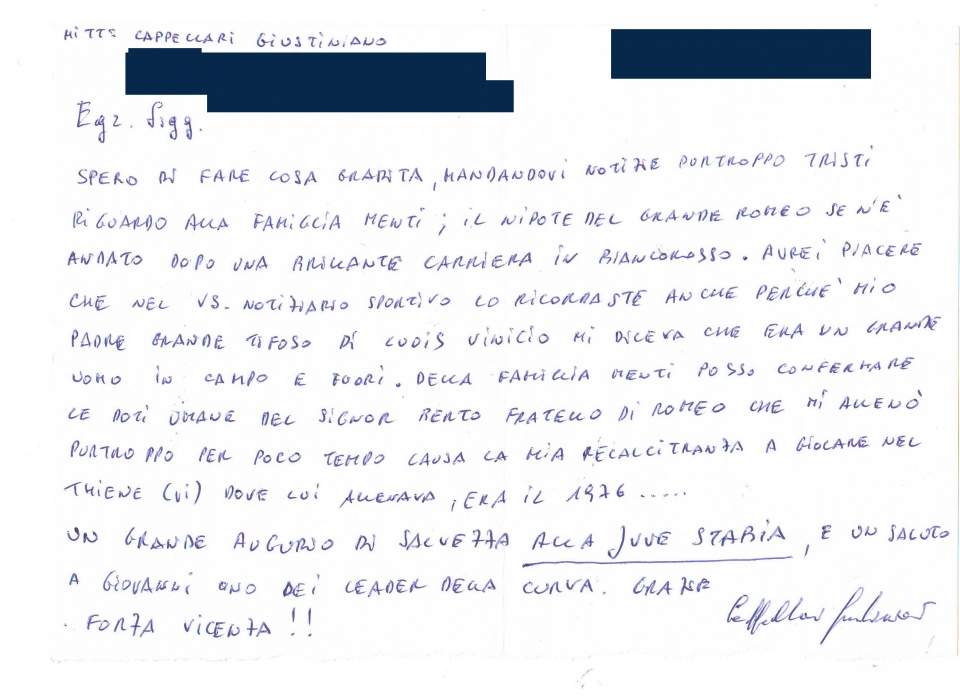 MITTE CAPPELLARI GIUSTINIANO
Egr. Sigg.
SPERO DI FARE COSA GRADITA, MANDANDOVI NOTIZIE PURTROPPO TRISTI
RIGUARDO ALLA FAMIGLIA MENTI; IL NIPOTE DEL GRANDE ROMEO SE N'È
ANDATO DOPO UNA BRILLANTE CARRIERA IN BIANCOROSSO. AVREI PIACERE
CHE NEL VS. NOTIZIARIO SPORTIVO LO RICORDASTE ANCHE PERCHE' MIO
PADRE GRANDE TIFOSO DI LUOIS VINICIO MI DICEVA CHE ERA UN GRANDE
UOMO IN CAMPO E FUORI. DELLA FAMIGLIA MENTI POSSO CONFERMARE
LE DOTI UMANE DEL SIGNOR BERTO FRATELLO DI ROMEO CHE MI ALLENÒ
PURTROPPO PER POCO TEMPO CAUSA LA MIA RECALCITRANZA A GIOCARE NEL
THIENE (VI) DOVE LUI ALLENAVA, ERA IL 1976 .....
UN GRANDE AUGURIO DI SALVEZZA ALLA JUVE STABIA, E UN SALUTO
A GIOVANNI UNO DEI LEADER DELLA CURVA. GRAZIE
FORZA VICENZA !!